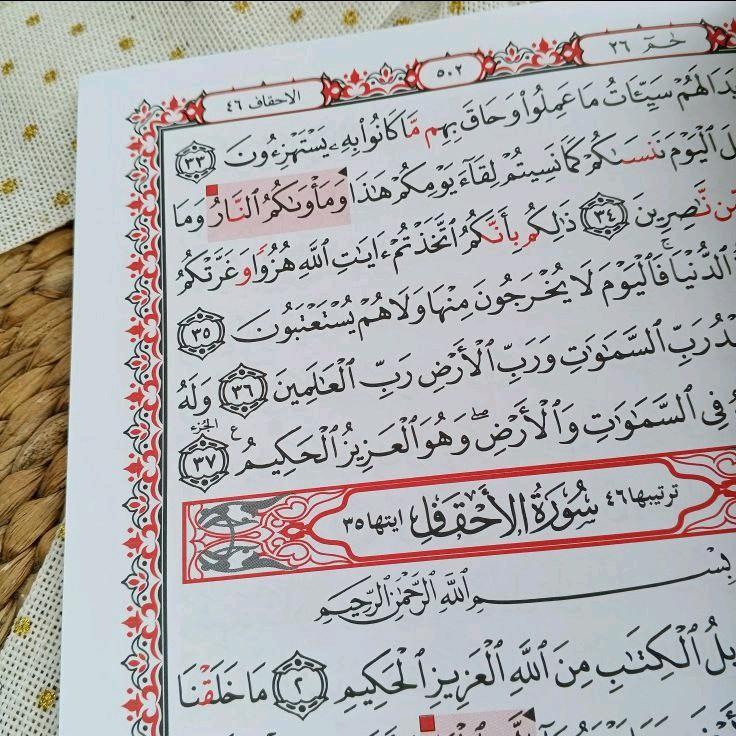 حٰمٓ ٢٦ ٥٠٢ الاحقاف ٤٦
سَيِّـَٔاتُ مَا عَمِلُوا۟ وَحَاقَ بِهِم مَّا كَانُوا۟ بِهِۦ يَسْتَهْزِءُونَ ٣٣
ٱلْيَوْمَ نَنسَىٰكُمْ كَمَا نَسِيتُمْ لِقَآءَ يَوْمِكُمْ هَٰذَا وَمَأْوَىٰكُمُ ٱلنَّارُ وَمَا
نَّٰصِرِينَ ٣٤ ذَٰلِكُم بِأَنَّكُمُ ٱتَّخَذْتُمْ ءَايَٰتِ ٱللَّهِ هُزُوًا وَغَرَّتْكُمُ
ٱلدُّنْيَا ۚ فَٱلْيَوْمَ لَا يُخْرَجُونَ مِنْهَا وَلَا هُمْ يُسْتَعْتَبُونَ ٣٥
رَبِّ ٱلسَّمَٰوَٰتِ وَرَبِّ ٱلْأَرْضِ رَبِّ ٱلْعَٰلَمِينَ ٣٦ وَلَهُ
فِى ٱلسَّمَٰوَٰتِ وَٱلْأَرْضِ ۖ وَهُوَ ٱلْعَزِيزُ ٱلْحَكِيمُ ٣٧ ع الجزء
ترتيبها ٤٦ سُورَةُ الأَحْقَافِ ايتها ٣٥
بِسْمِ ٱللَّهِ ٱلرَّحْمَٰنِ ٱلرَّحِيمِ
ٱلْكِتَٰبِ مِنَ ٱللَّهِ ٱلْعَزِيزِ ٱلْحَكِيمِ ٢ مَا خَلَقْنَا